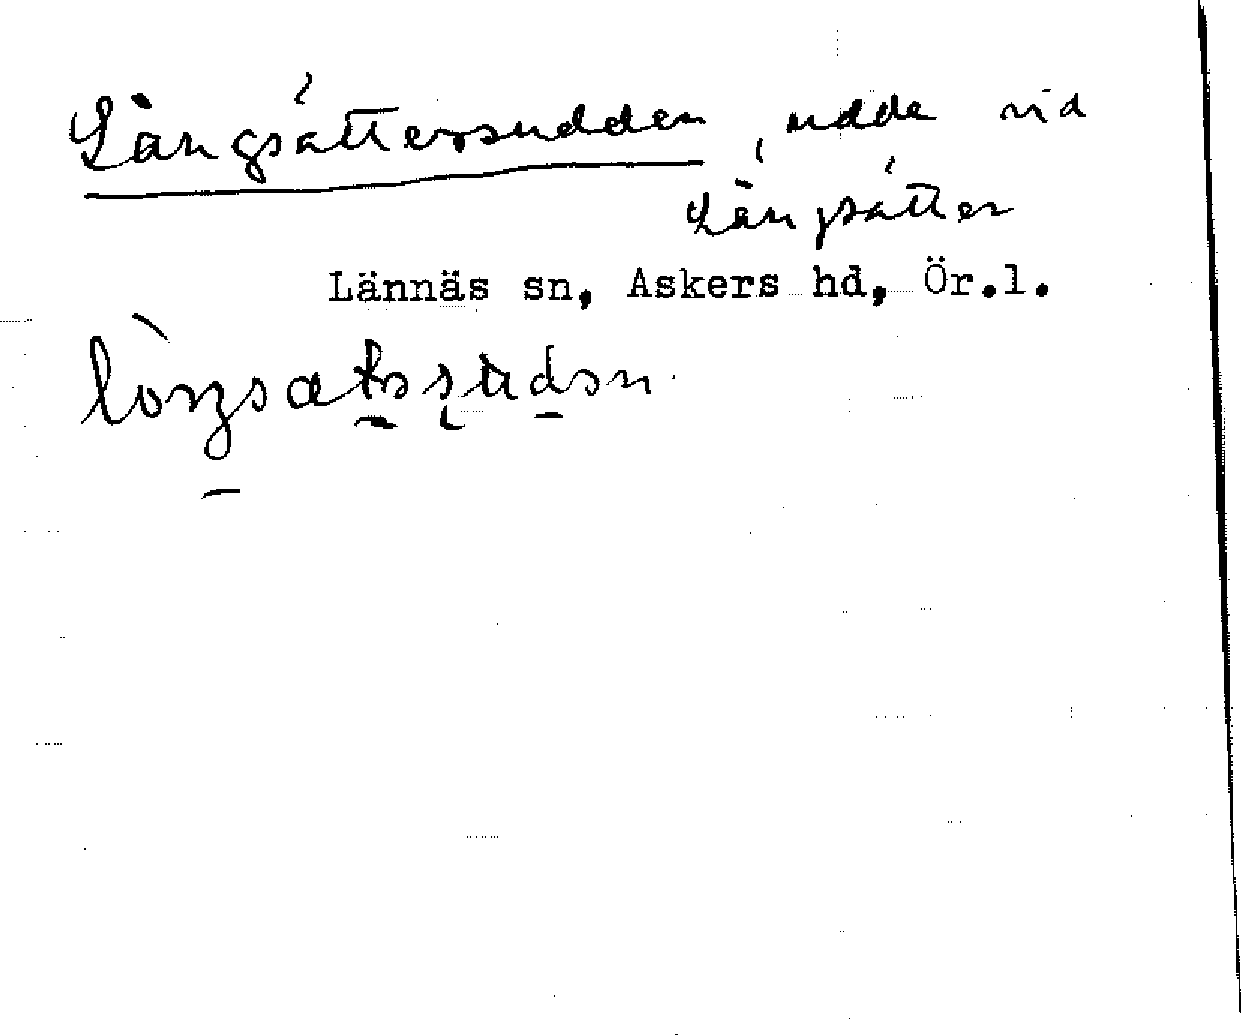 Långsättersudden, udde vid
Långsätter
Lännäs sn, Askers hd, Ör.l.